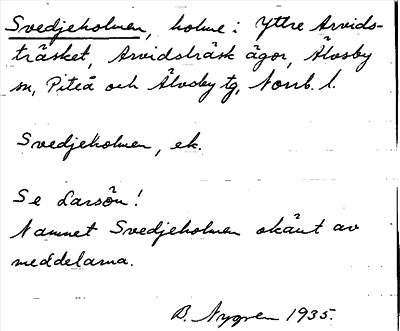 Svedjeholmen, holme i Yttre Arvids-
träsket, Arvidsträsk ägor, Älvsby
sn, Piteå och Älvsby tg, Norrb. l.
Svedjeholmen, ek.
Se Larsön!
Namnet Svedjeholmen okänt av
meddelarna.
B. Nygren 1935.